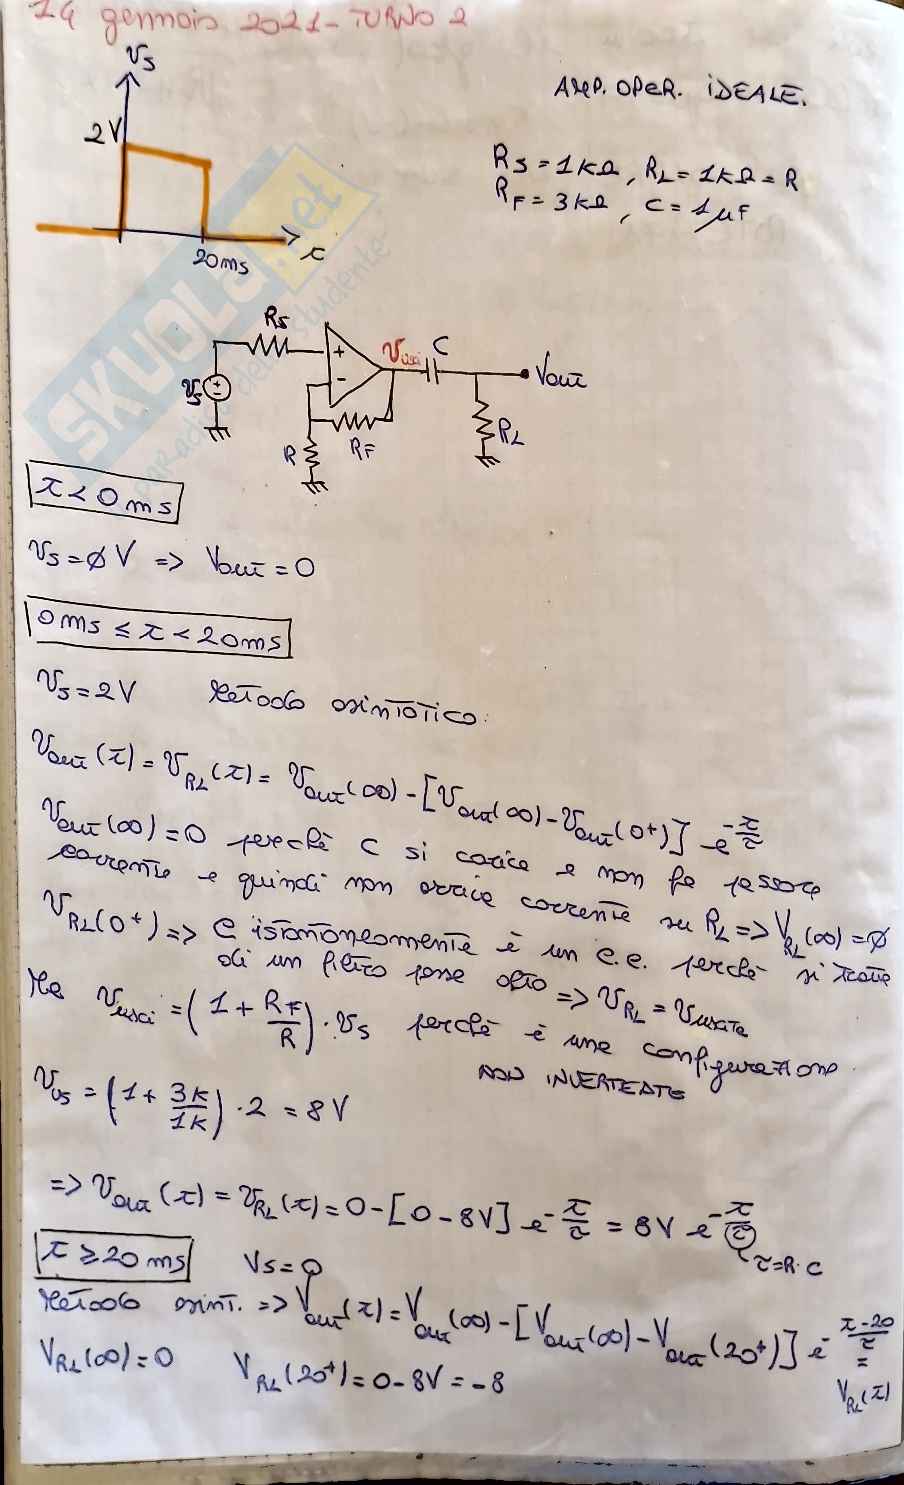 14 gennaio 2021 - TURNO 2
Vs
2V
20ms
t
AMP. OPER. IDEALE.
Rs = 1kΩ, RL = 1kΩ = R
RF = 3kΩ, C = 1μF
Rs
Vusci
C
Vout
Vs
+
-
RF
R
RL
t < 0 ms
Vs = ∅ V => Vout = 0
0ms ≤ t < 20ms
Vs = 2V Metodo asintotico:
Vout(t) = VRL(t) = Vout(∞) - [Vout(∞) - Vout(0+)] e^-t/τ
Vout(∞) = 0 perchè C si carica e non fa passare
corrente e quindi non arriva corrente su RL => VRL(∞) = ∅
VRL(0+) => C istantaneamente è un c.c. perchè si tratta
di un filtro passa alto => VRL = Vuscita
Ma Vusci = (1 + RF/R) · Vs perchè è una configurazione
NON INVERTENTE
Vus = (1 + 3k/1k) · 2 = 8V
=> Vout(t) = VRL(t) = 0 - [0 - 8V] e^-t/τ = 8V e^-t/τ
τ = R·C
t ≥ 20 ms Vs = 0
Metodo asint. => Vout(t) = Vout(∞) - [Vout(∞) - Vout(20+)] e^-t-20/τ =
VRL(∞) = 0 VRL(20+) = 0 - 8V = -8
VRL(t)
SKUOLA.net
paradiso dello studente